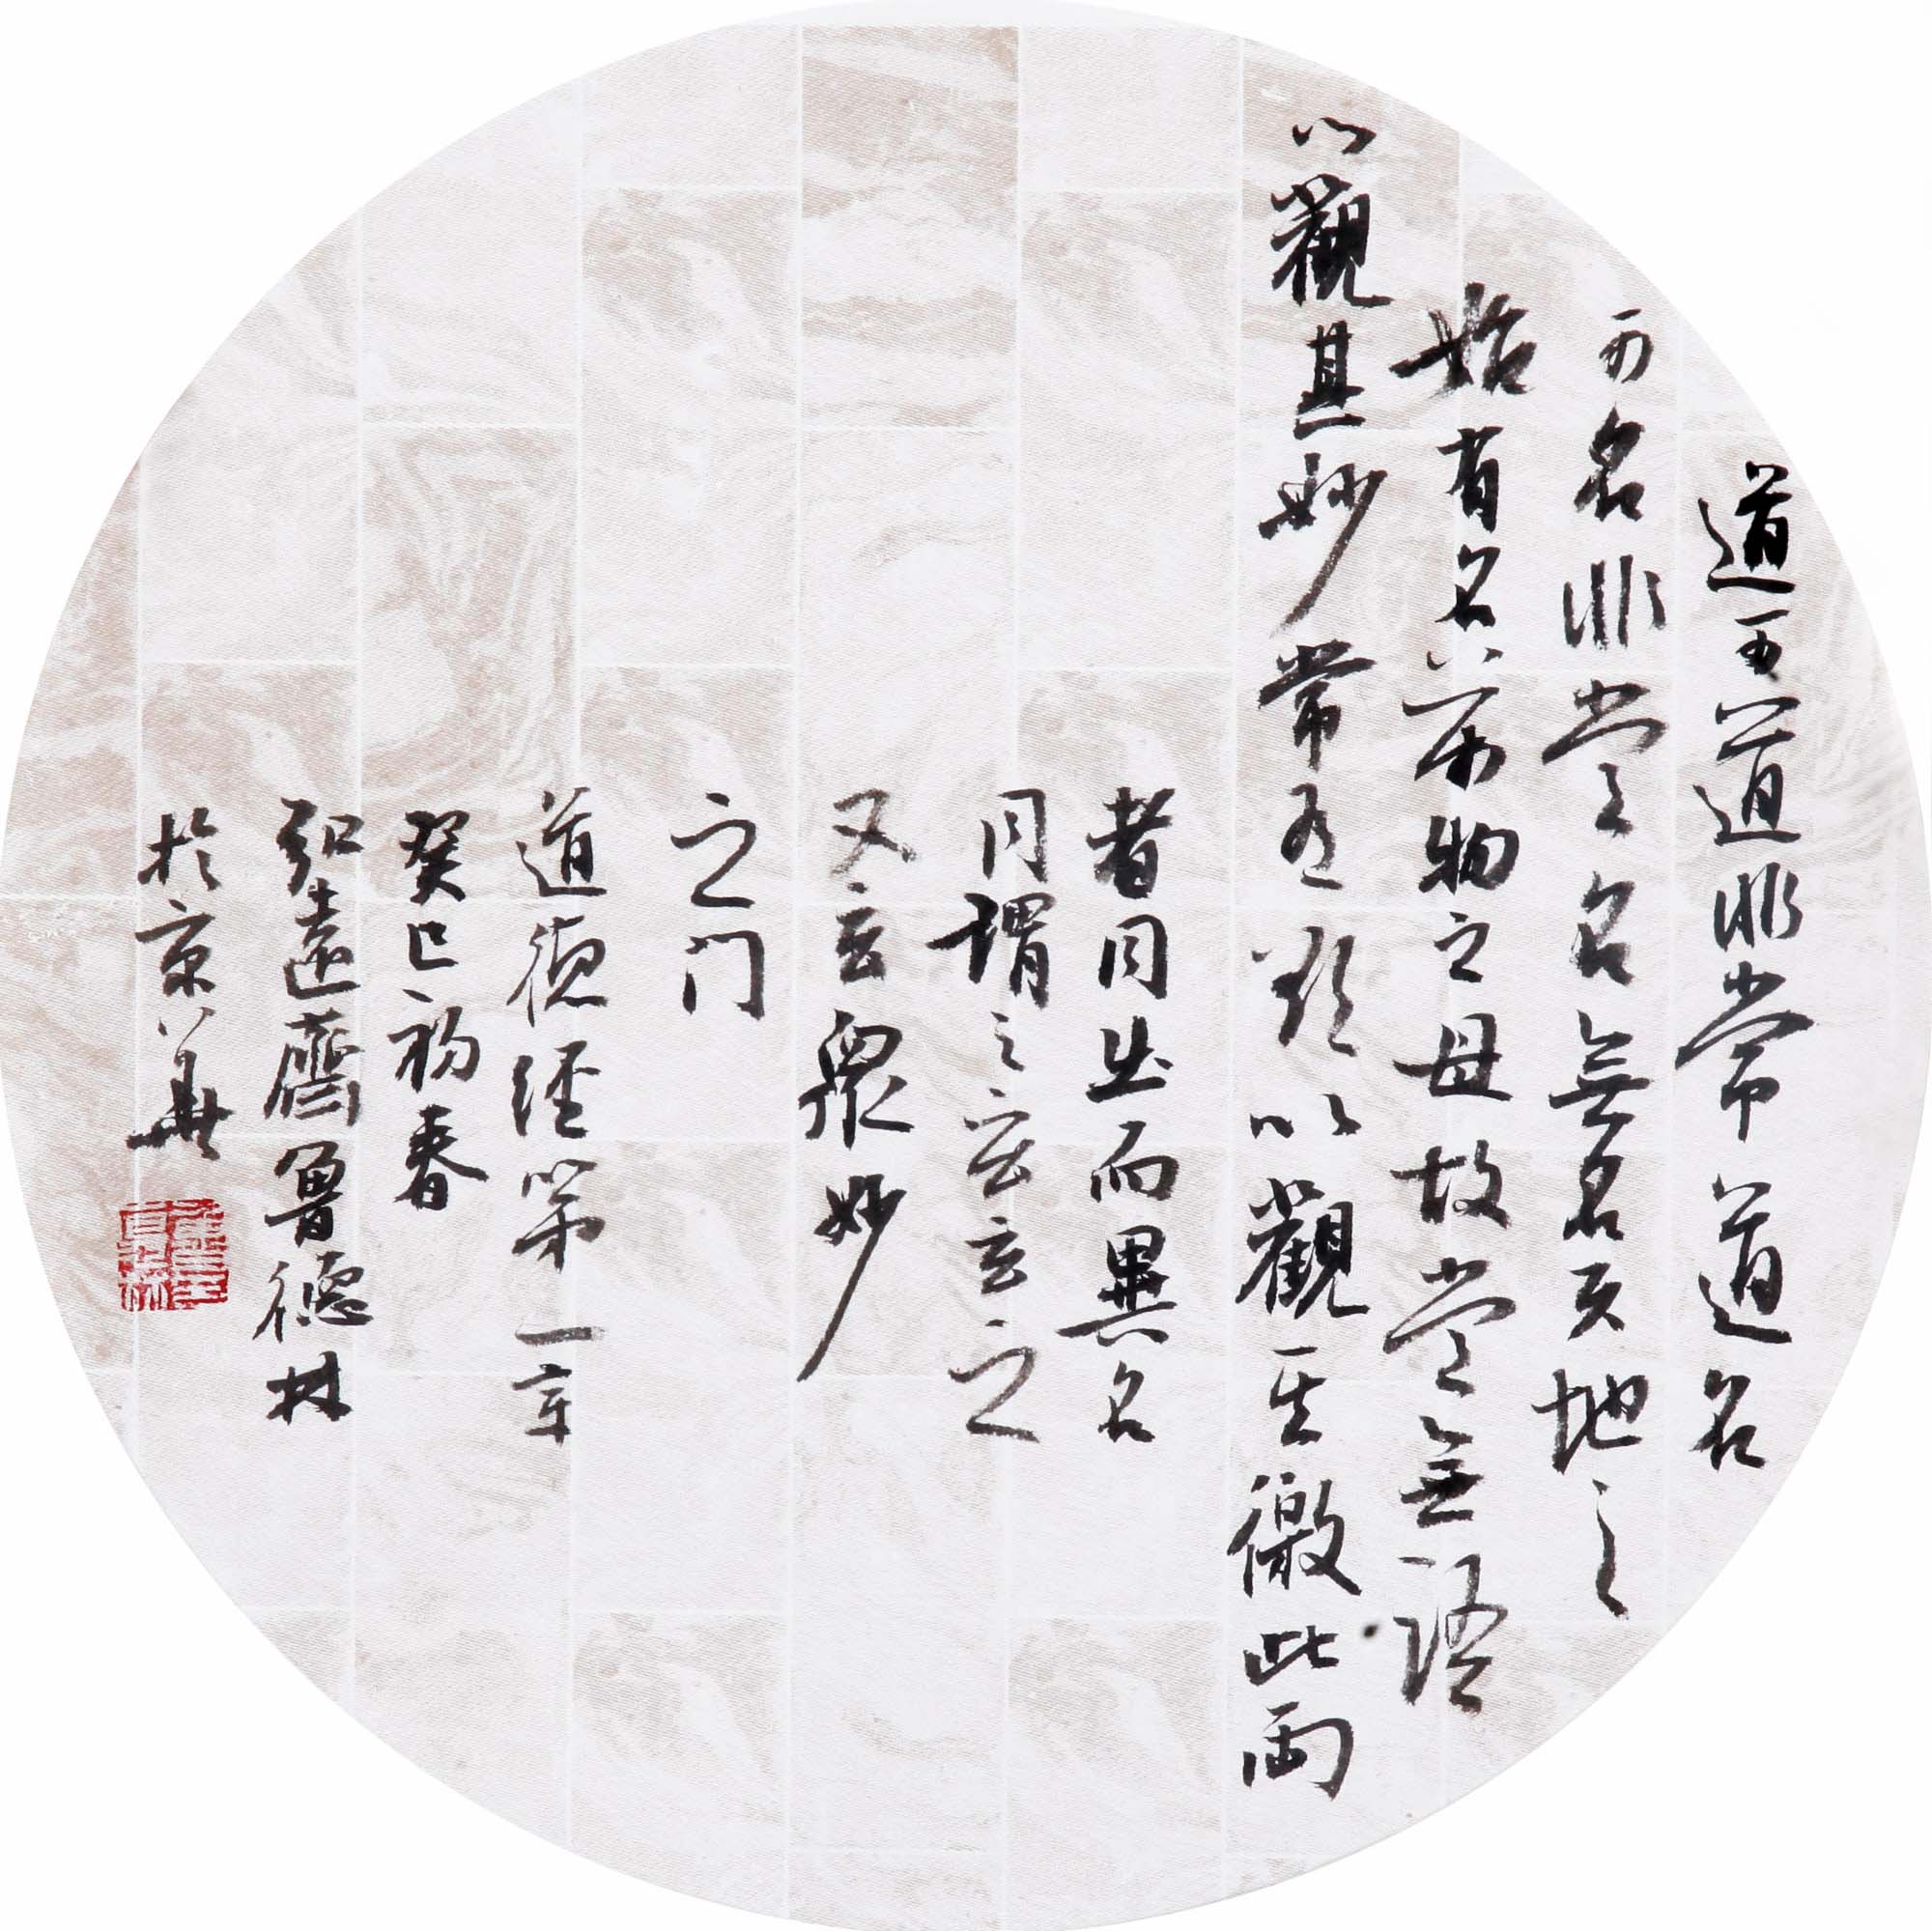 道可道非常道名
可名非常名無名天地之
始有名萬物之母故常無欲
以觀其妙常有欲以觀其徼此兩
者同出而異名
同謂之玄玄之
又玄眾妙
之门
道德経第一章
癸巳初春
弘遠齋魯德林
於京華